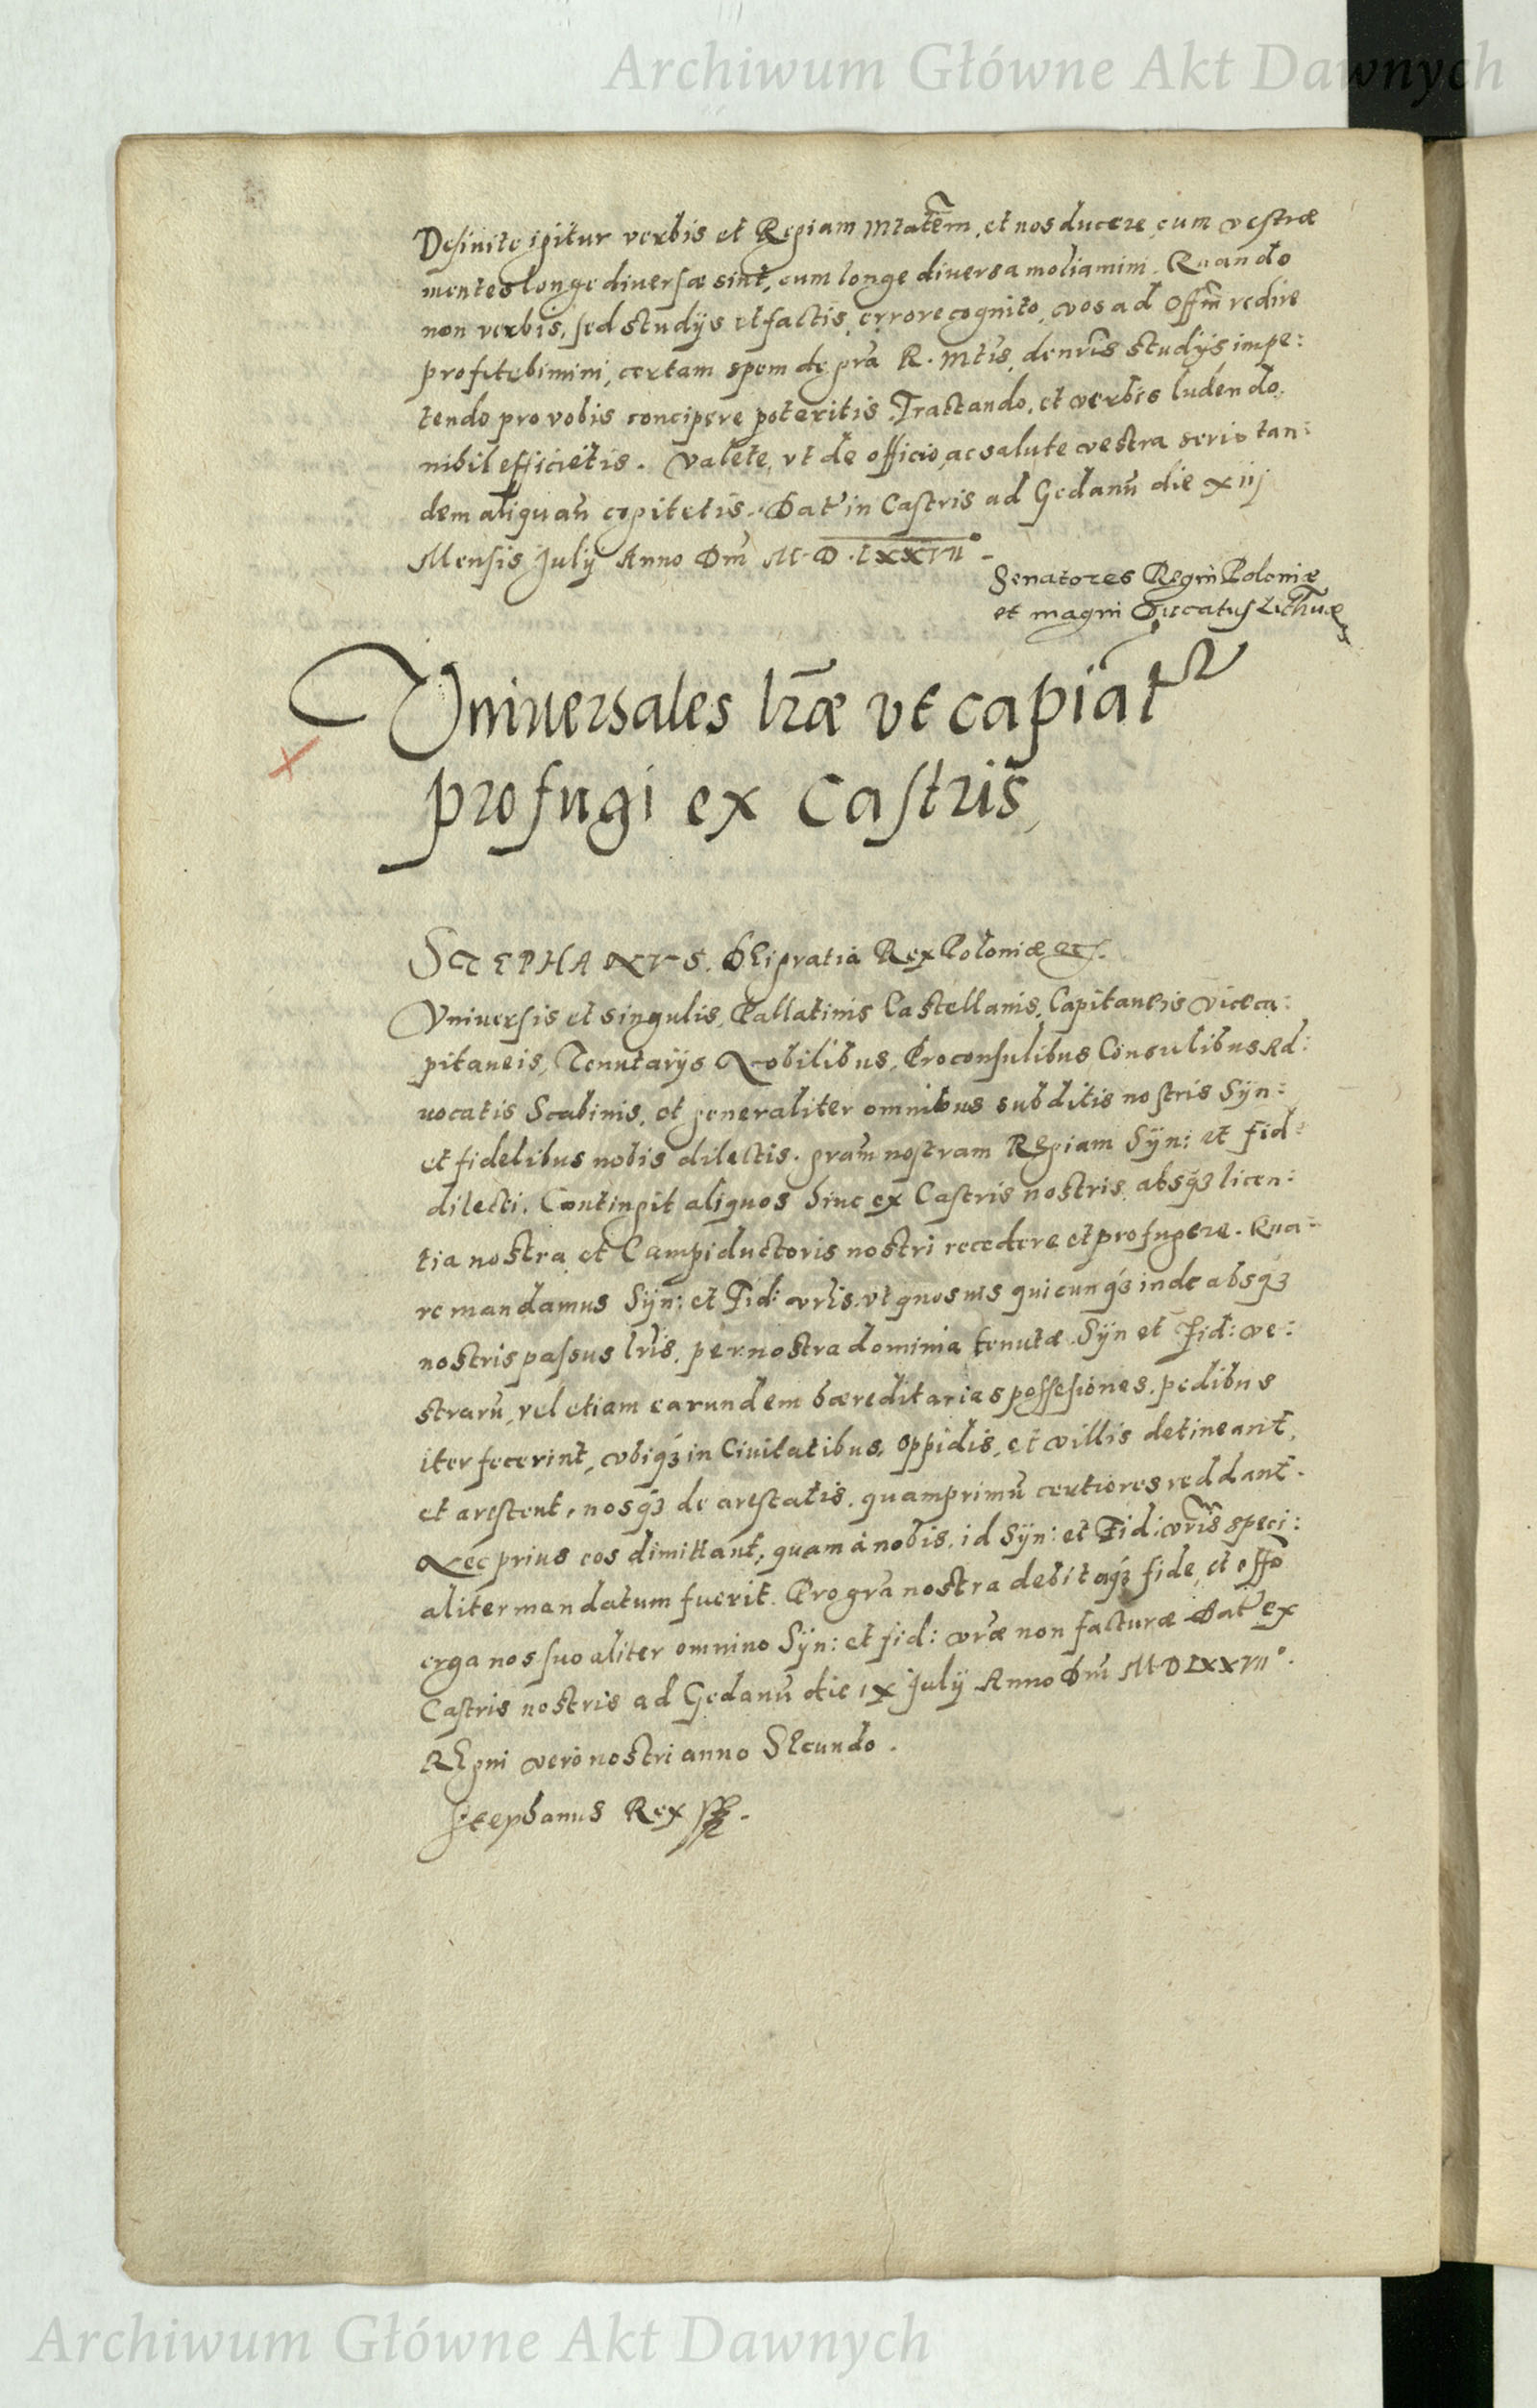 Archiwum Główne Akt Dawnych
Desinite igitur verbis et Regiam Mtatem, et nos ducere, cum vestræ
mentes longe diversæ sint, cum longe diversa moliamini. Quando
non verbis, sed studijs et factis, errore cognito, vos ad offm̃ redire
profitebimini, certam spem de gra͂ R. Mtis, de nr͂is studijs impe:
tendo pro vobis concipere poteritis. Tractando, et verbis ludendo,
nihil efficietis. Valete, vt de officio, ac salute vestra serio tan:
dem aliquan͂ cogitetis. Dat' in Castris ad Gedanu͂ die xiij
Mensis Julij Anno Dni͂ M.D.LXXVII°
Senatores Regni Poloniæ
et magni Ducatus Lithuæ
Vniuersales lr͂æ vt capiat͂r
profugi ex Castris,
STEPHANVS. DEi gratia Rex Poloniæ etc.
Vniuersis et singulis, Pallatinis Castellanis, Capitaneis Viceca:
pitaneis, Tenutarijs Nobilibus, Proconsulibus Consulibus Ad:
uocatis Scabinis, et generaliter omnibus subditis nostris Syn:
et fidelibus nobis dilectis. gram͂ nostram Regiam Syn: et fid:
dilecti. Contingit aliquos hinc ex Castris nostris, absq3 licen:
tia nostra et Campiductoris nostri recedere et profugere. Qua:
re mandamus Syn: et Fid: vr͂is. vt quosuis quicunq3 inde absq3
nostris passus lr͂is, per nostra dominia tenutæ Syn et Fid: ve:
straru͂, vel etiam earundem hæreditarias possesiones, pedibus
iter fecerint, vbiq3 in Ciuitatibus, oppidis, et villis detineant,
et arestent, nosq3 de arestatis, quamprimu͂ certiores reddant.
Nec prius eos dimittant, quam à nobis, id Syn: et Fid: vr͂is speci:
aliter mandatum fuerit. Pro gra͂ nostra debitaq3 fide, et offo
erga nos suo aliter omnino Syn: et fid: vr͂æ non facturæ Dat' ex
Castris nostris ad Gedanu͂ die ix Julij Anno Dni͂ M.D.LXXVII°.
REgni vero nostri anno SEcundo.
Stephanus Rex sst.
Archiwum Główne Akt Dawnych